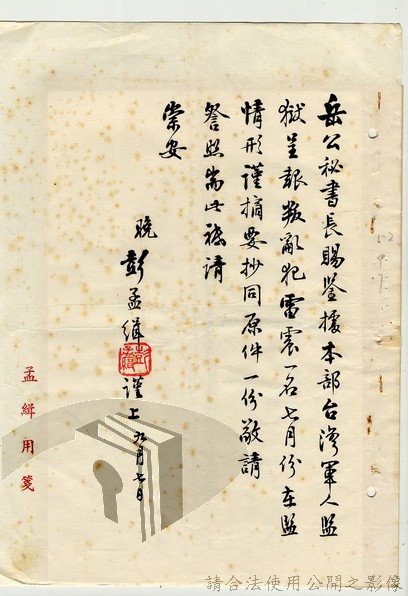 岳公秘書長賜鑒據本部台灣軍人監
獄呈報叛亂犯雷震一名七月份在監
情形謹摘要抄同原件一份敬請
詧照耑此祗請
崇安
晚彭孟緝謹上九月七日
孟緝用箋
請合法使用公開之影像